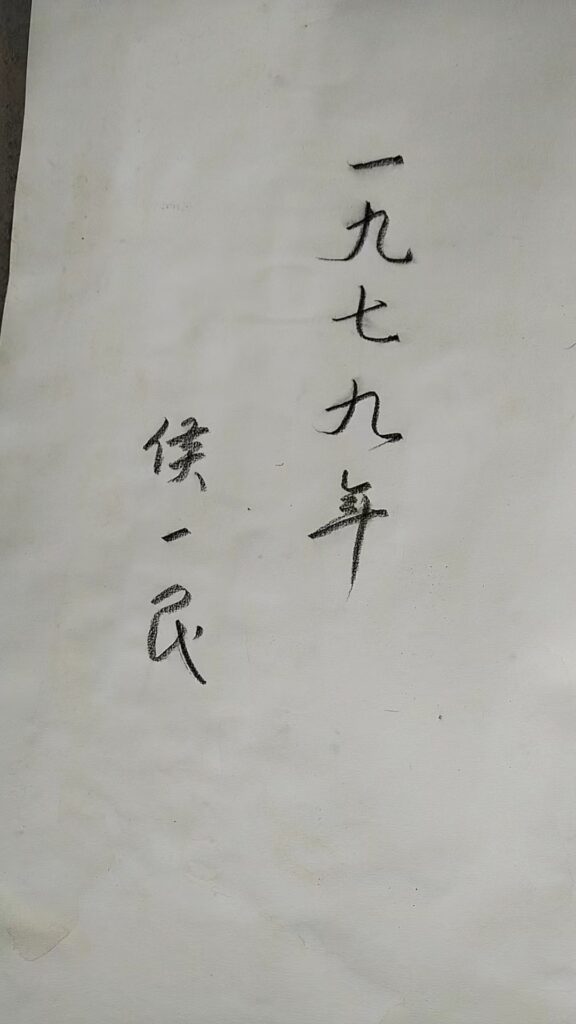 一九七九年
侯一民